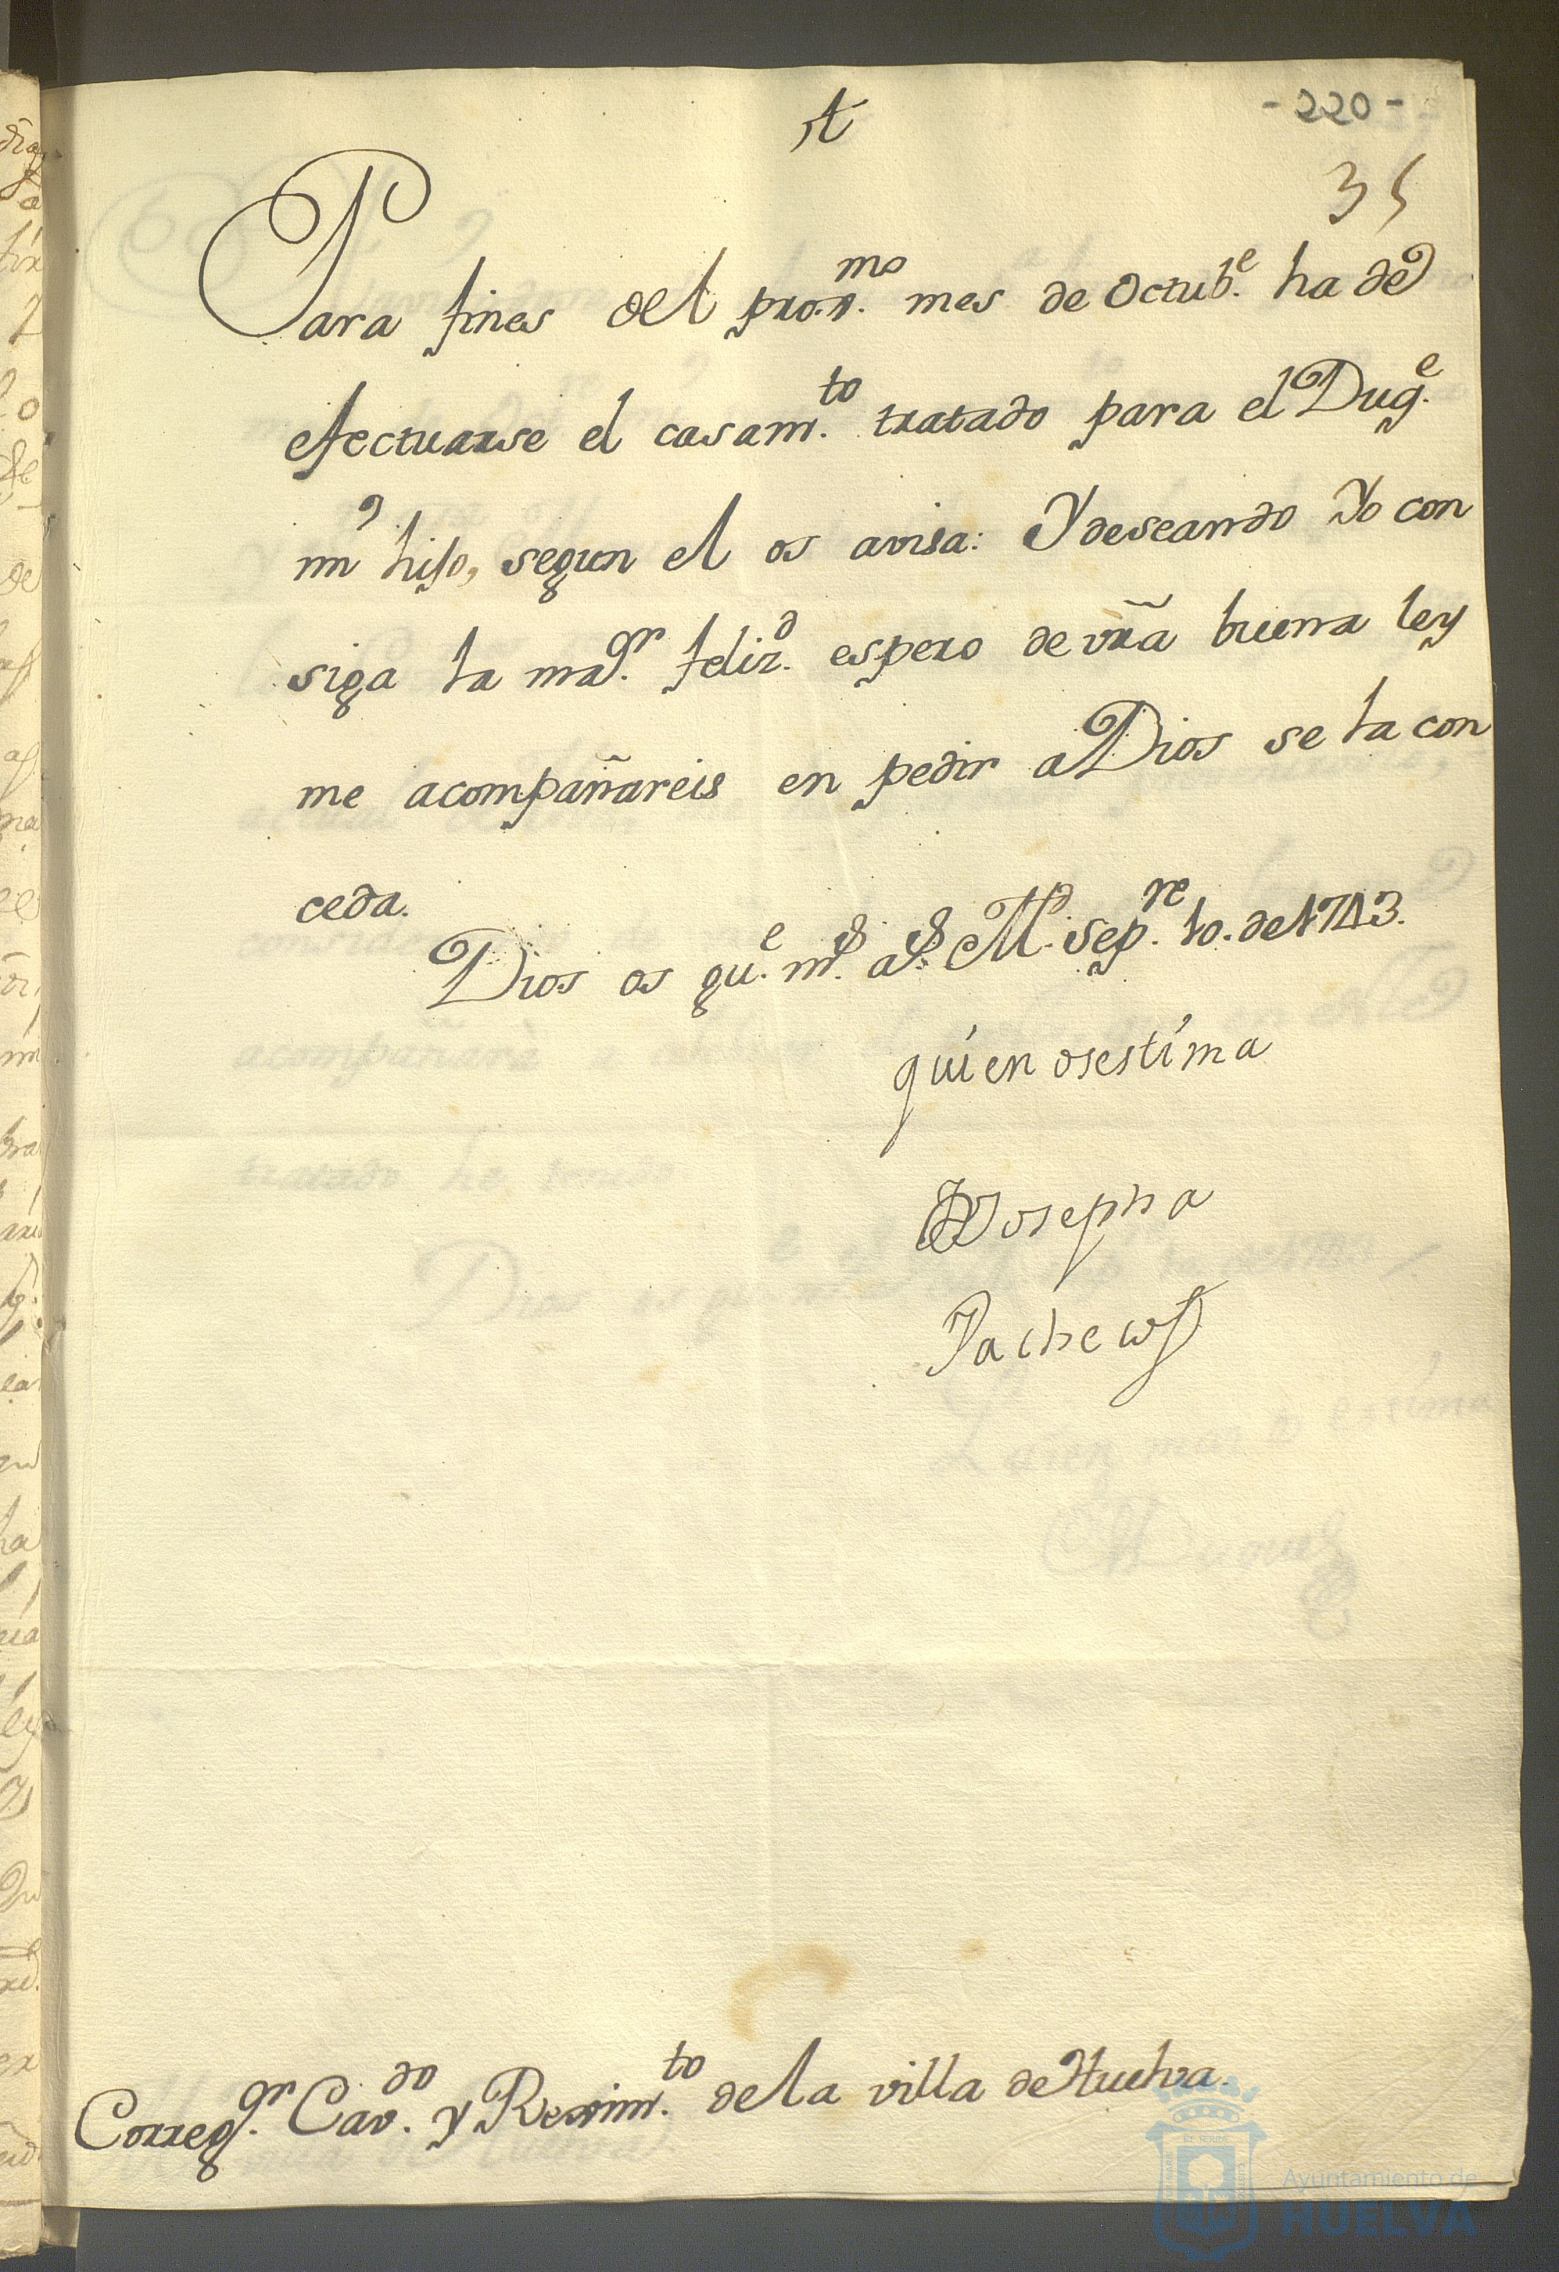 - 220 -
35
Para fines del pro.x.mo mes de Octub.e ha de
efectuarse el casam.to tratado para el Duq.e
mi hijo, segun el os avisa: Y deseando Yo con
siga la ma.or feliz.d espero de vrã buena ley
me acompañareis en pedir a Dios se la con
ceda.
Dios os gu.e m.s a.s M.d Sep.re 10. de 1743.
quien os estima
Josepha
Pacheco
Correg.or Cav.do y Rexim.to de la villa de Huelva.
Ayuntamiento de
HUELVA